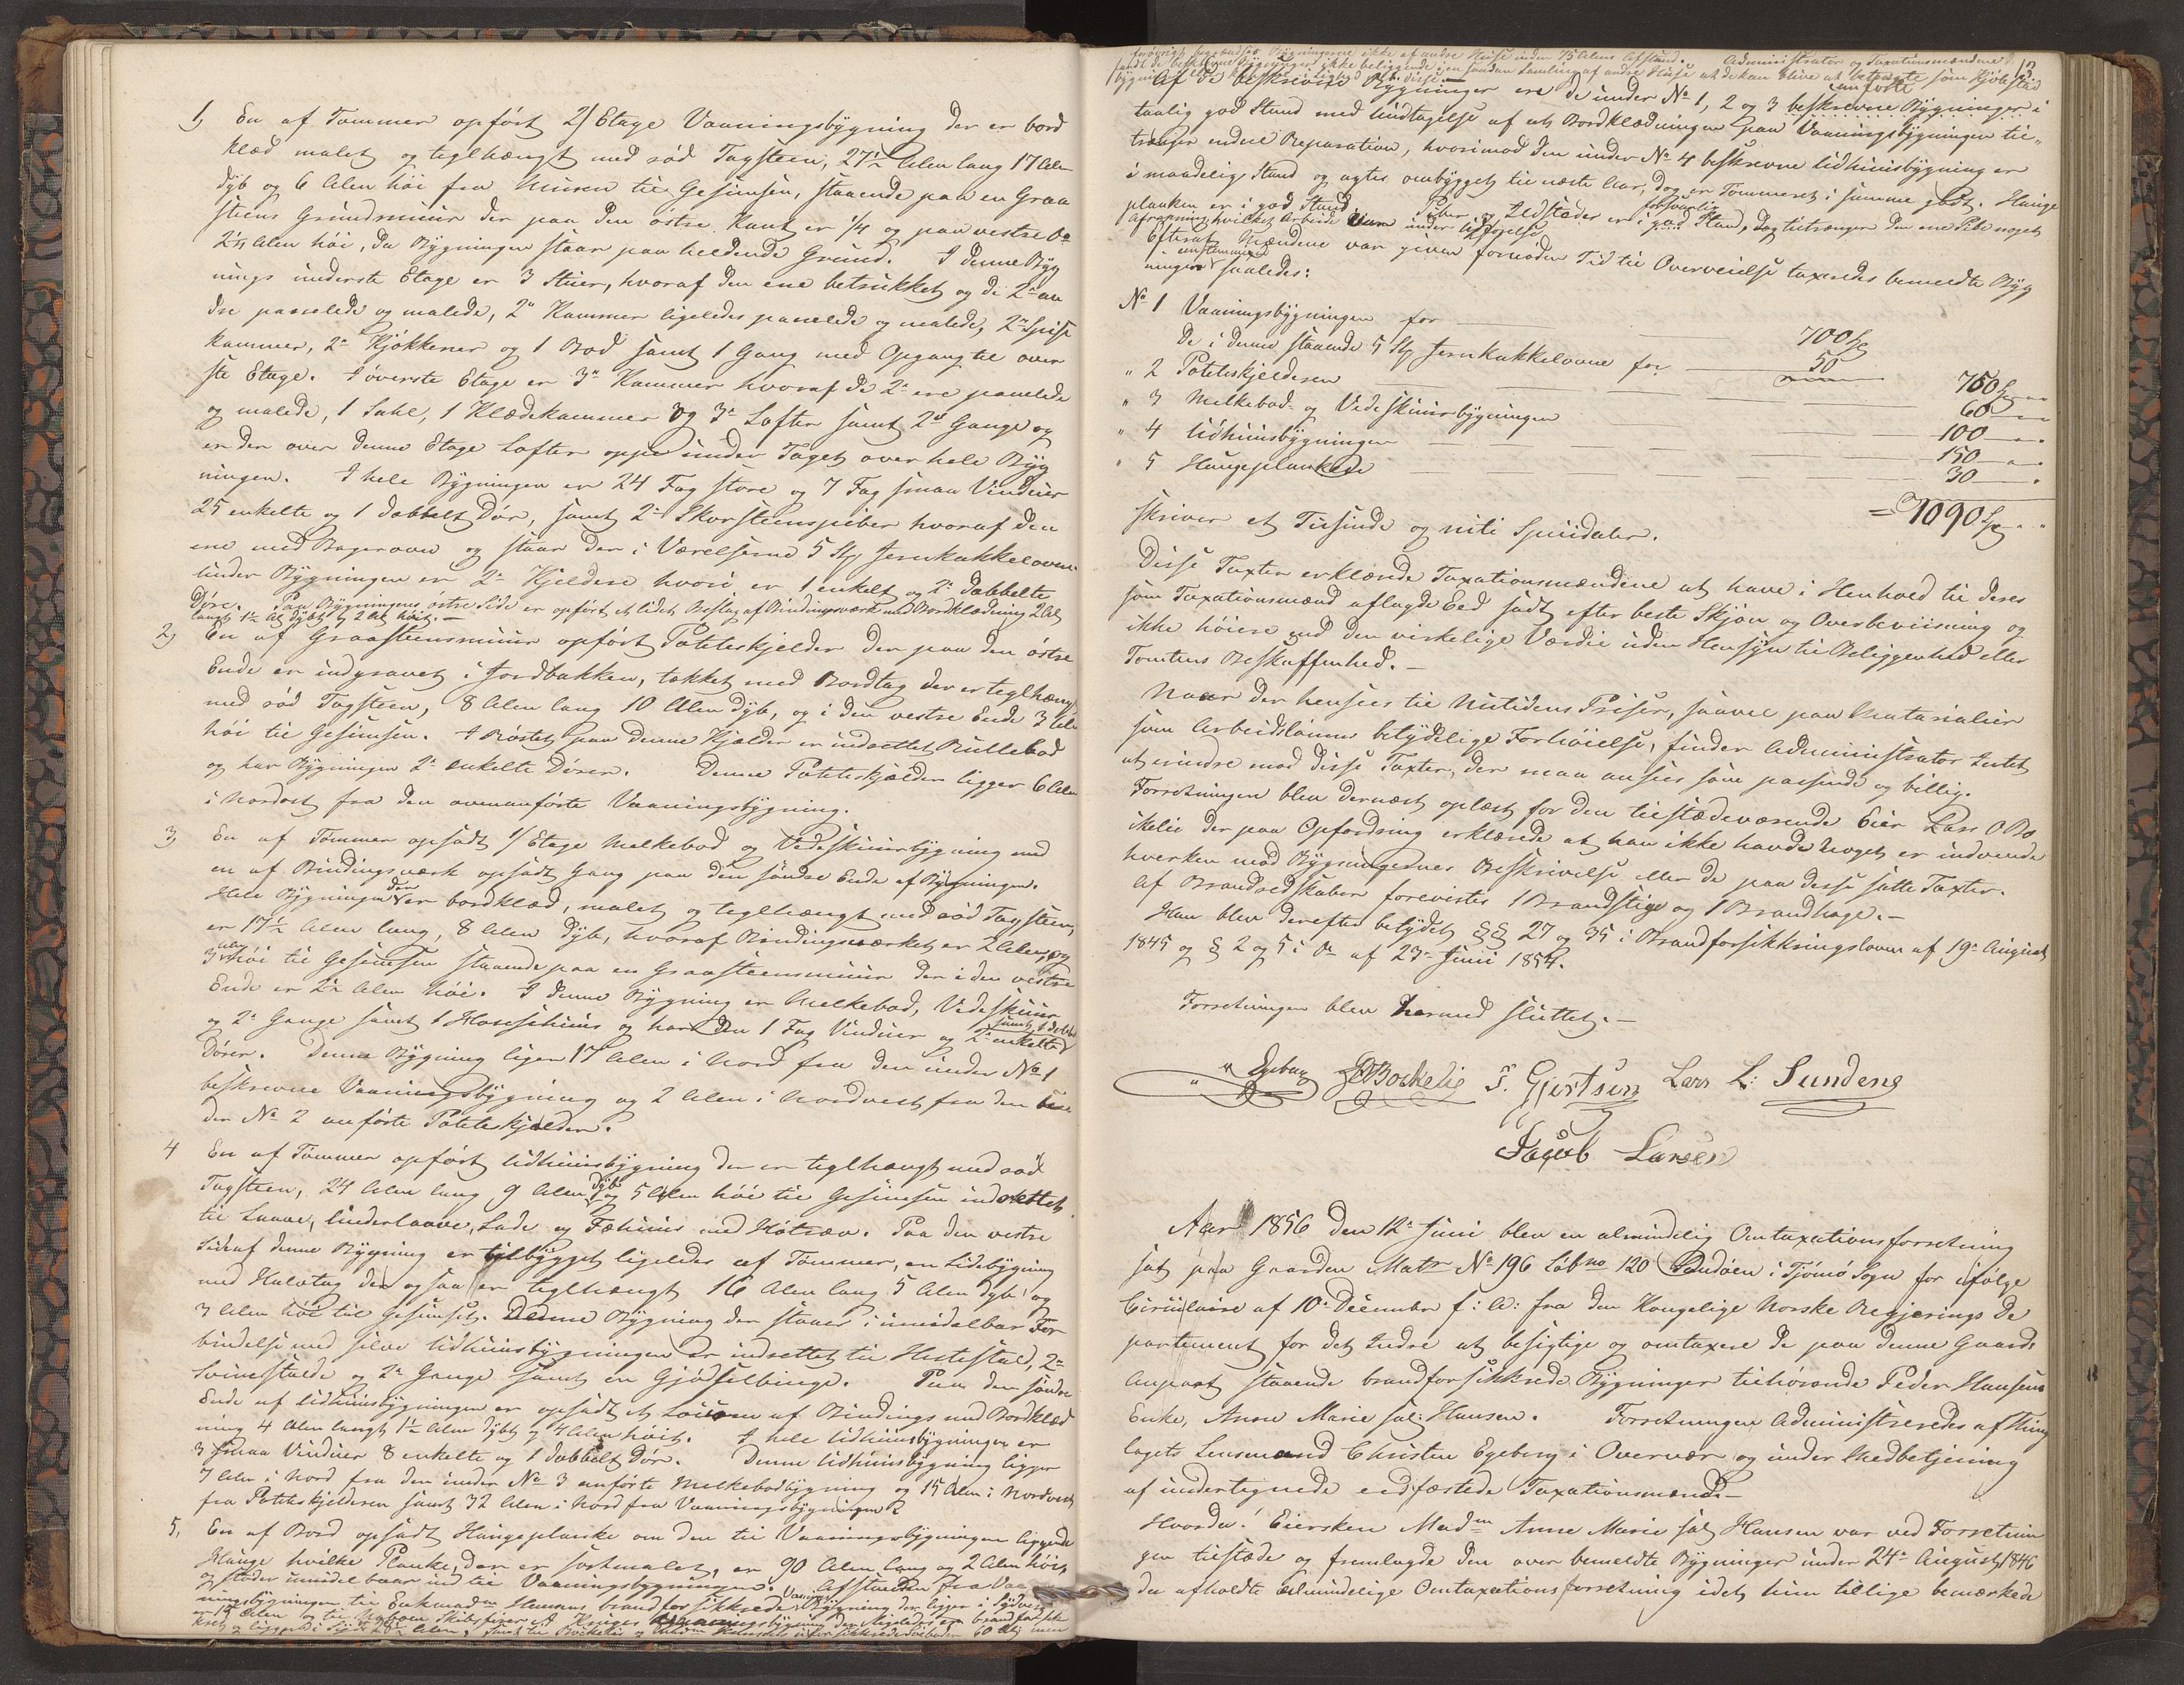 1) En af Tømmer opført 2/ Etage Vaaningsbygning der er bord
klæd malet og teglhængt med rød Tagsteen, 27½ Alen lang 17 Alen
dyb og 6 Alen høi fra Muren til Gesimsen, staaende paa en Graa
steens Grundmuur der paa den østre Kant er ¼ og paa vestre Do
2½ Alen høi, da Bygningen staar paa heldende Grund. I denne Byg
nings underste Etage er 3 Stuer, hvoraf den ene betrukket og de 2de an
dre panelede og malede, 2de Kammer ligeledes panelede og malede, 2de Spise
kammer, 2de Kjøkkener og 1 Bod samt 1 Gang med Opgang til øver
ste Etage. I øverste Etage er 3de Kammer hvoraf de 2de ere panelede
og malede, 1 Sahl, 1 Klædekammer og 3de Lofter samt 2de Gange og
er der over denne Etage Lofter oppe under Taget over hele Byg
ningen. I hele Bygningen er 24 Fag store og 7 Fag smaa Vinduer
25 enkelte og 1 dobbelt Dør, samt 2de Skorsteenspiber hvoraf den
ene med Bagerovn og staar der i Værelserne 5 Stk Jernkakkelovne
under Bygningen er 2de Kjeldere hvori er 1 enkelt og 2de dobbelte
Døre. Paa Bygningens østre Side er opført et lidet Beslag af Bindingsværk med Bordklædning 2 Al
langt 1½ Al dybt og 2 Al høit.—
2) En af Graasteensmuur opført Poteteskjelder der paa den østre
Ende er indgravet i Jordbakken, takket med Bordtag der er teglhængt
med rød Tagsteen, 8 Alen lang 10 Alen dyb, og i den vestre Ende 3 Alen
høi til Gesimsen. I Røstet paa denne Kjelder er indrettet Rullebod
og har Bygningen 2de enkelte Dører. Denne Poteteskjelder ligger 6 Alen
i Nordost fra den ovenanførte Vaaningsbygning.
3 En af Tømmer opsadt 1/ Etage Melkebod og Vedeskuursbygning med
en af Bindingsværk opsadt Gang paa den søndre Ende af Bygningen.
Hele Bygningen der er bordklæd, malet og teglhængt med rød Tagsteen,
er 17½ Alen lang, 8 Alen dyb, hvoraf Bindingsværket er 2 Alen, og
3 Alen høi til Gesimsen staaende paa en Graasteensmuur der i den vestre
Ende er 2½ Alen høi. I denne Bygning er Melkebod, Vedeskuur
og 2de Gange samt 1 og har den 1 Fag Vinduer og 2de enkelte samt 1 dobbelt
Dører. Denne Bygning ligger 17 Alen i Nord fra den under No 1
beskrevne Vaaningsbygning og 2 Alen i Nordvest fra den un
der No 2 anførte Poteteskjelder.
4 En af Tømmer opført Udhuusbygning der er teglhængt med rød
Tagsteen, 24 Alen lang 9 Alen dyb og 5 Alen høi til Gesimsen indrettet
til Laave, Underlaave, Lade og Fæhuus med Høtræv. Paa den vestre
Side af denne Bygning er tilbygget ligeledes af Tømmer, en Sidebygning
med Halvtag der ogsaa er teglhængt 16 Alen lang 5 Alen dyb og
3 Alen høi til Gesimset. Denne Bygning der staar i umidelbar For
bindelse med selve Udhuusbygningen er indrettet til Hestestald, 2de
Svinestalde og 2de Gange samt en Gjødselbinge. Paa den søndre
Ende af Udhuusbygningen er opsadt et af Bindings med Bordklæd
ning 4 Alen langt 1½ Alen dybt og 4 Alen høit. I hele Udhuusbygningen er
3 smaa Vinduer 8 enkelte og 1 dobbelt Dør. Denne Udhuusbygning ligger
7 Alen i Nord fra den under No 3 anførte Melkebodbygning og 15 Alen i Nordvest
fra Poteteskjelderen samt 32 Alen i Nord fra Vaaningsbygningen
5, En af Bord opsadt Haugeplanke om den til Vaaningsbygningen liggende
Hauge hvilke Planke, der er sortmalet, er 90 Alen lang og 2 Alen høi
og støder umidelbaar ind til Vaaningsbygningen. Afstanden fra Vaa
ningsbygningen til Enkemadm Hansens brandforsikkrede Vaanings Bygning der ligger i Sydvest
er 15 Alen og til Naboen Skibsfører A
13
forøvrigt begrændses Bygningerne ikke af andre Huse inden 75 Alens Afstand. Administrator og Taxationsmændene
fandt de beskrevne Bygninger ikke beliggende i en saadan Samling af andre Huse at de kan blive at betragte som Kjøbstad
Af de beskrevne Bygninger ere de under No 1, 2 og 3 anførte beskrevne Bygninger i
taalig god Stand med Undtagelse af at Bordklædningen paa Vaaningsbygningen til„
trænger endeel Reparation, hvorimod den under No 4 beskrevne Udhuusbygning er
i maadelig Stand og agtes ombygget til næste Aar, dog er Tømmeret i samme godt. Hauge
planken er i god Stand. Piber og Ildsteder er i forsvarlig god Stand, dog tiltrænger den ene Pibe noget
Afpudsning hvilket Arbeide er under Udførelse.
Efterat Mændene var given fornøden Tid til Overveielse taxeredes bemeldte Byg
ninger eenstemmig saaledes:
No 1 Vaaningsbygningen for — 700 Sp
De i denne staaende 5 Stk Jernkakkelovne for — 50
750 Sp „ „
„ 2 Poteteskjelderen — 60 — „ „
„ 3 Melkebod- og Vedeskuursbygningen — 100 — „ „
„ 4 Udhuusbygningen — 150 — „ „
„ 5 Haugeplankede — 30 — „
= 1090 Sp „ „
skriver et Tusinde og niti Speciedaler.
Disse Taxter erklærede Taxationsmændene at have i Henhold til deres
som Taxationsmænd aflagde Eed sadt efter beste Skjøn og Overbeviisning og
ikke høiere end den virkelige Værdie uden Hensyn til Beliggenhed eller
Tomtens Beskaffenhed.—
Naar der hensees til Nutidens Priser, saavel paa Materialier
som Arbeidsløns betydelige Forhøielse, finder Administrator Intet
at erindre mod disse Taxter, der maa ansees som passende og billig.
Forretningen blev dernæst oplæst for den tilstædeværende Eier Lars O Bø
ckelie der paa Opfordring erklærede at han ikke havde noget er indvende
hverken mod Bygningernes Beskrivelse eller de paa desse satte Taxter.
Af Brandredskaber forevistes 1 Brandstige og 1 Brandhage.—
Han blev derefter betydet §§ 27 og 35 i Brandforsikkringsloven af 19de August
1845 og § 2 og 5 i Do af 23de Juni 1854.
Forretningen blev hermed sluttet.—
Egeberg Bøckelie T. Gjertsen Lars L: Sundene
Jacob Larsen
Aar 1856 den 12te Juni blev en almindelig Omtaxationsforretning
sat paa Gaarden Matr No 196 Løbno 120 i Tjømø Sogn for ifølge
Circulaire af 10de December f: A: fra den Kongelige Norske Regjerings De
partement for det Indre at besigtige og omtaxere de paa denne Gaards
Anpart staaende brandforsikkrede Bygninger tilhørende Peder Hansens
Enke, Anne Marie sal: Hansen. Forretningen Administreredes af Thing
lagets Lensmand Christen Egeberg i Overvær og under Medbetjening
af undertegnede eedfæstede Taxationsmænd.—
Hvorda! Eiersken Madm Anne Marie sal Hansen var ved Forretnin
gen tilstæde og fremlagde den over bemeldte Bygninger under 24de August 1846
da afholdte almindelige Omtaxationsforretning idet hun tillige bemærkede